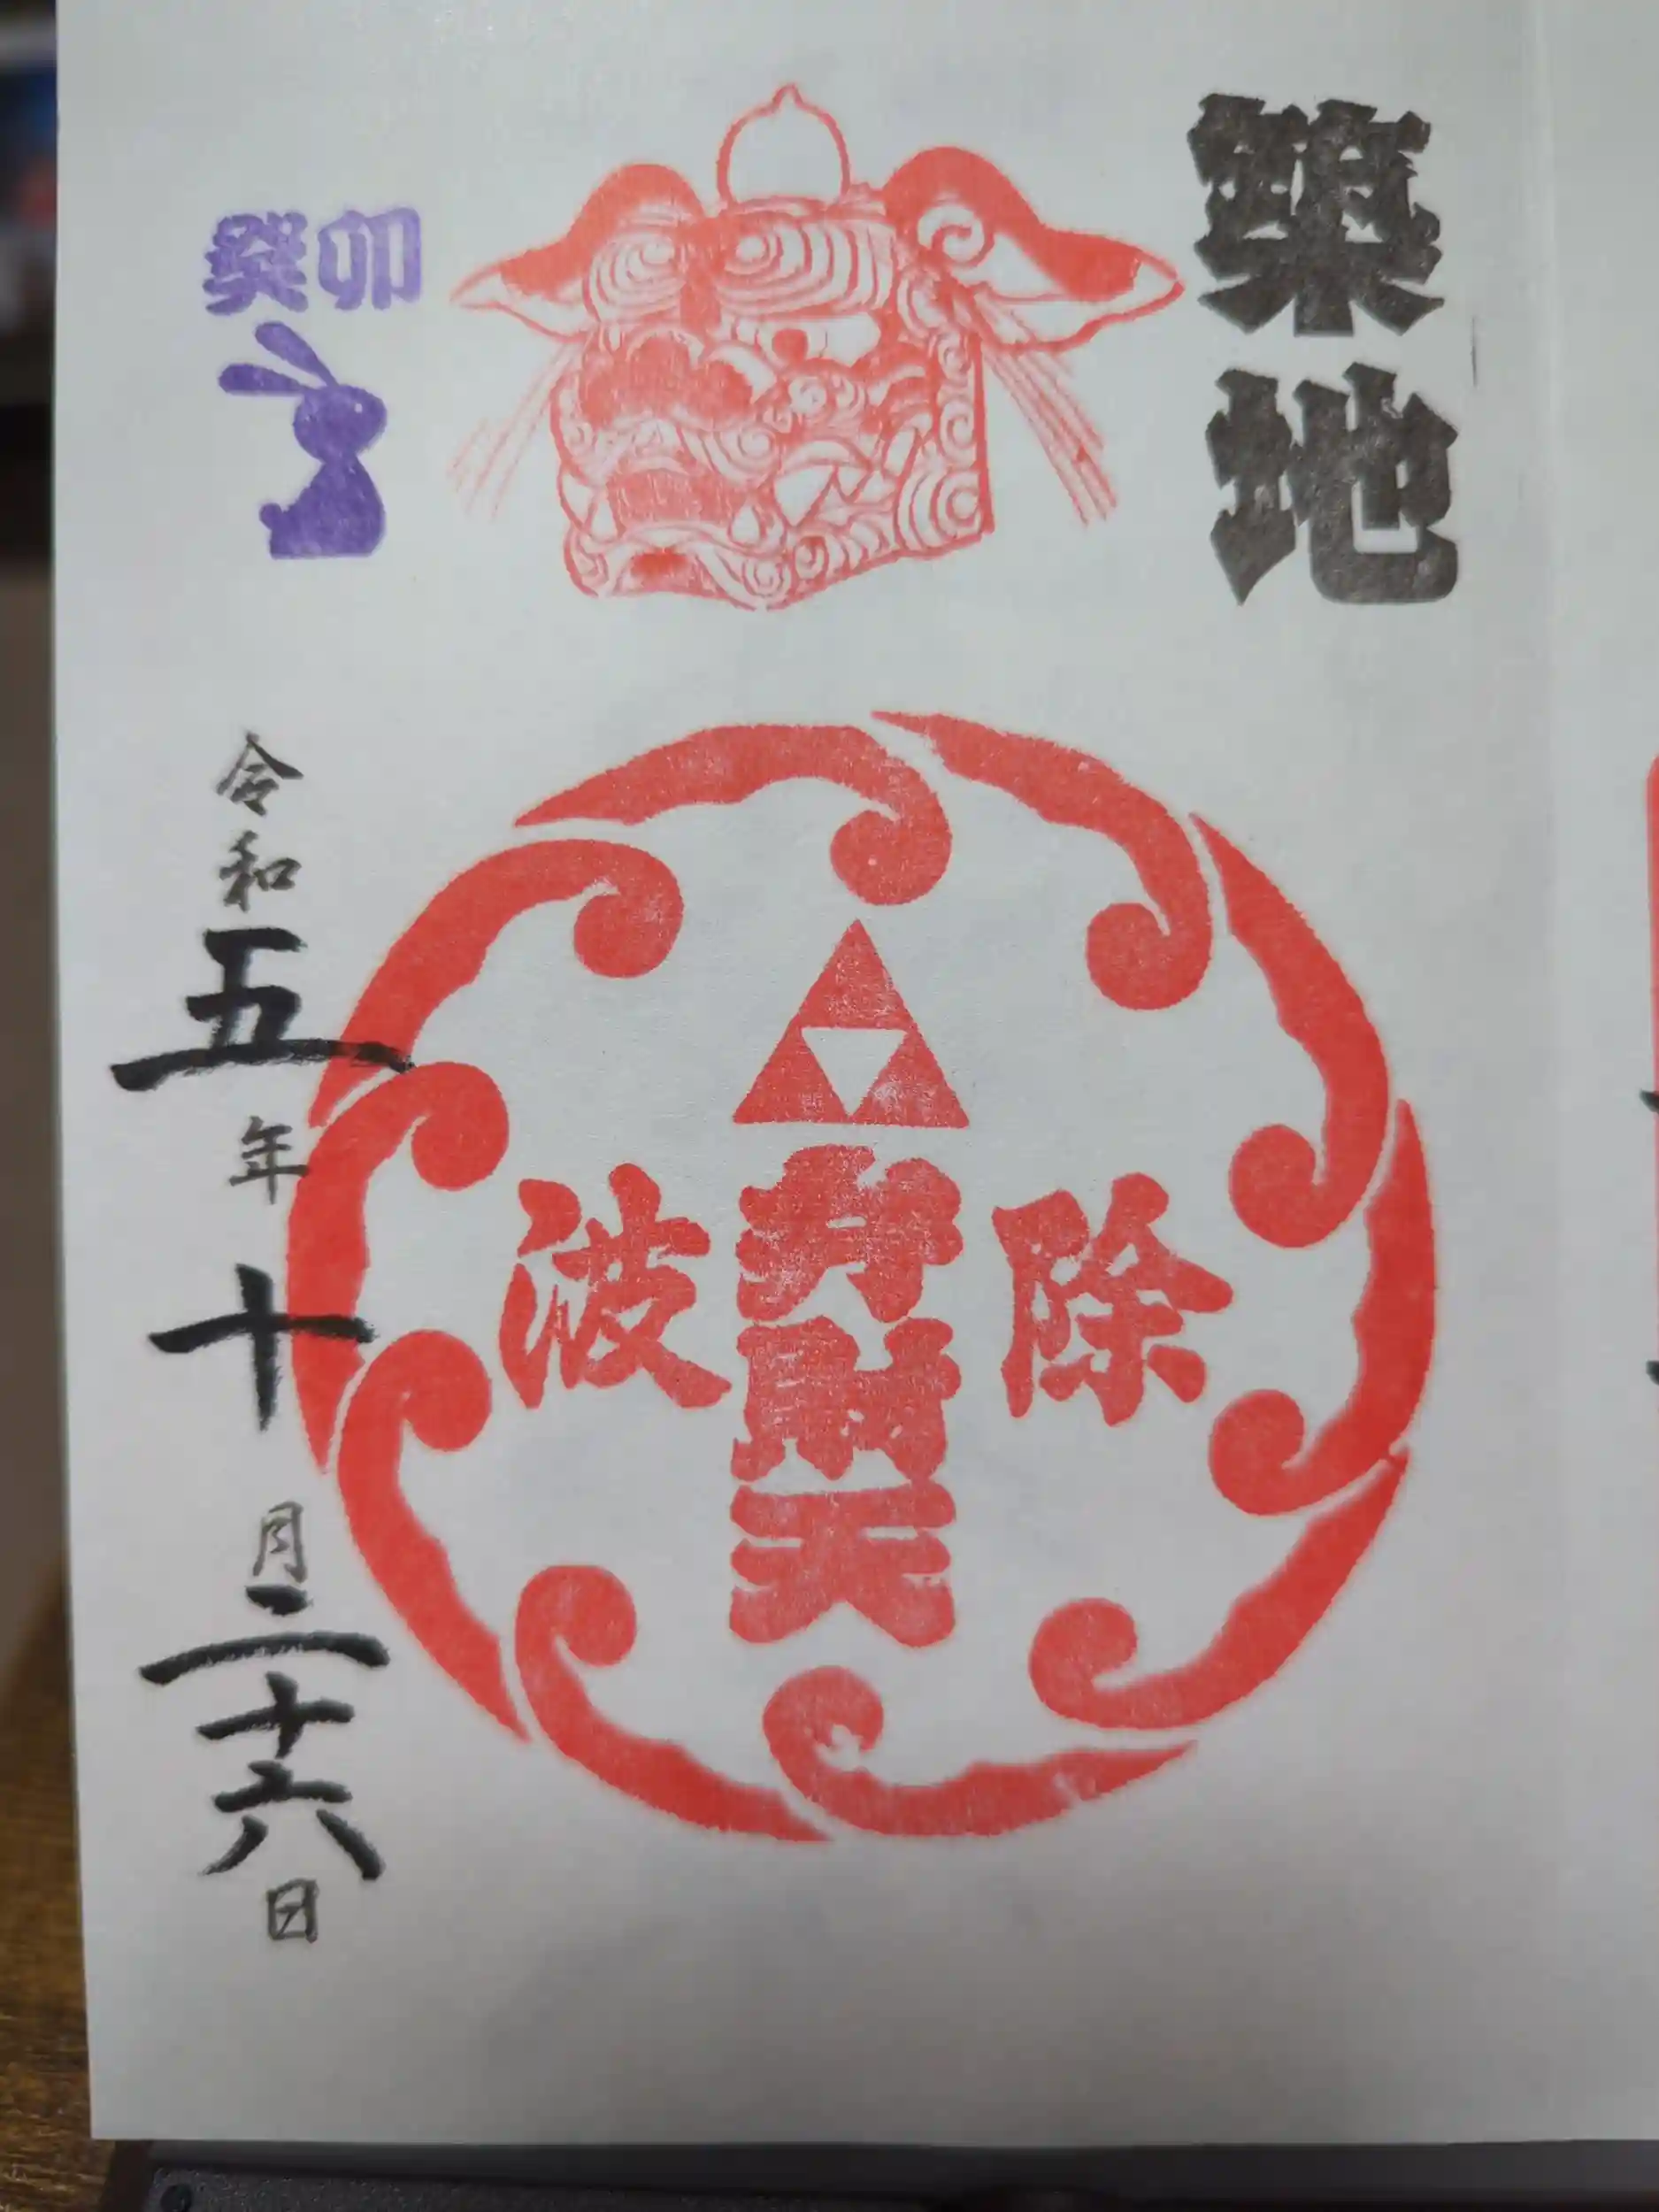 築地
癸卯
波除
弁財天
令和五年十月二十六日